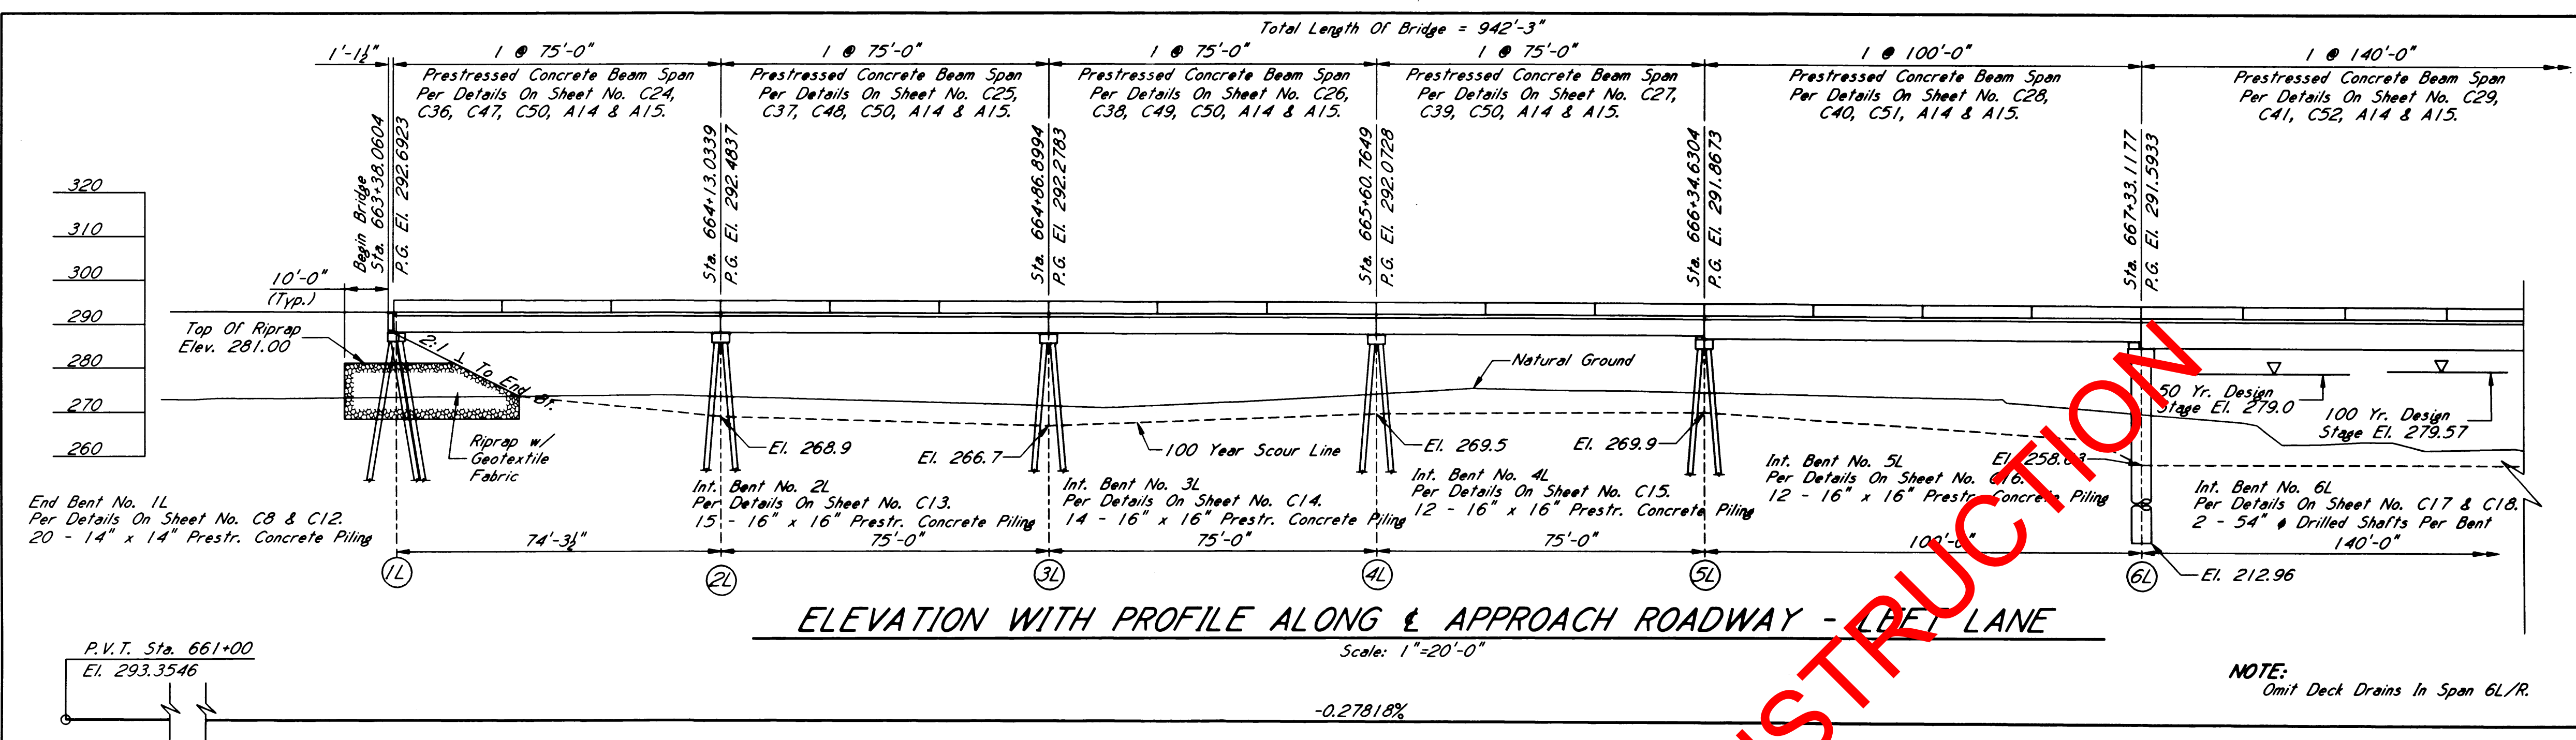 Total Length Of Bridge = 942'-3"
1'-1½"
1 @ 75'-0"
1 @ 75'-0"
1 @ 75'-0"
1 @ 75'-0"
1 @ 100'-0"
1 @ 140'-0"
Prestressed Concrete Beam Span
Per Details On Sheet No. C24,
C36, C47, C50, A14 & A15.
Prestressed Concrete Beam Span
Per Details On Sheet No. C25,
C37, C48, C50, A14 & A15.
Prestressed Concrete Beam Span
Per Details On Sheet No. C26,
C38, C49, C50, A14 & A15.
Prestressed Concrete Beam Span
Per Details On Sheet No. C27,
C39, C50, A14 & A15.
Prestressed Concrete Beam Span
Per Details On Sheet No. C28,
C40, C51, A14 & A15.
Prestressed Concrete Beam Span
Per Details On Sheet No. C29,
C41, C52, A14 & A15.
Begin Bridge
Sta. 663+38.0604
P.G. El. 292.6923
Sta. 664+13.0339
P.G. El. 292.4837
Sta. 664+86.8994
P.G. El. 292.2783
Sta. 665+60.7649
P.G. El. 292.0728
Sta. 666+34.6304
P.G. El. 291.8673
Sta. 667+33.1177
P.G. El. 291.5933
320
310
300
290
280
270
260
10'-0"
(Typ.)
Top Of Riprap
Elev. 281.00
2:1 ⊥ To End Br.
Riprap w/
Geotextile
Fabric
Natural Ground
100 Year Scour Line
El. 268.9
El. 266.7
El. 269.5
El. 269.9
El. 258.63
50 Yr. Design
Stage El. 279.0
100 Yr. Design
Stage El. 279.57
End Bent No. 1L
Per Details On Sheet No. C8 & C12.
20 - 14" x 14" Prestr. Concrete Piling
Int. Bent No. 2L
Per Details On Sheet No. C13.
15 - 16" x 16" Prestr. Concrete Piling
Int. Bent No. 3L
Per Details On Sheet No. C14.
14 - 16" x 16" Prestr. Concrete Piling
Int. Bent No. 4L
Per Details On Sheet No. C15.
12 - 16" x 16" Prestr. Concrete Piling
Int. Bent No. 5L
Per Details On Sheet No. C16.
12 - 16" x 16" Prestr. Concrete Piling
Int. Bent No. 6L
Per Details On Sheet No. C17 & C18.
2 - 54" ϕ Drilled Shafts Per Bent
74'-3½"
75'-0"
75'-0"
75'-0"
100'-0"
140'-0"
1L
2L
3L
4L
5L
6L
El. 212.96
ELEVATION WITH PROFILE ALONG ℄ APPROACH ROADWAY - LEFT LANE
Scale: 1"=20'-0"
P.V.T. Sta. 661+00
El. 293.3546
-0.27818%
NOTE:
Omit Deck Drains In Span 6L/R.
STRUCTION